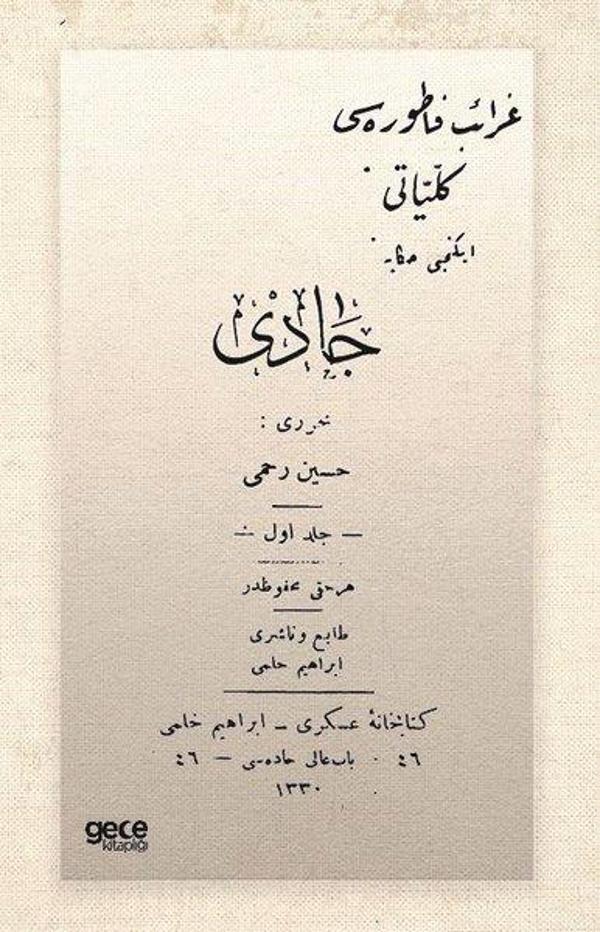 غرائب فاطوره‌سی
كلّیّاتی
ایكنجی حكایه
جادی
محرری :
حسین رحمی
— جلد اول —
هر حقی محفوظدر
طابع و ناشری
ابراهیم حلمی
كتابخانهٔ عسكری ـ ابراهیم حلمی
٤٦ باب عالی جاده‌سی — ٤٦
١٣٣٠
gece
kitaplığı